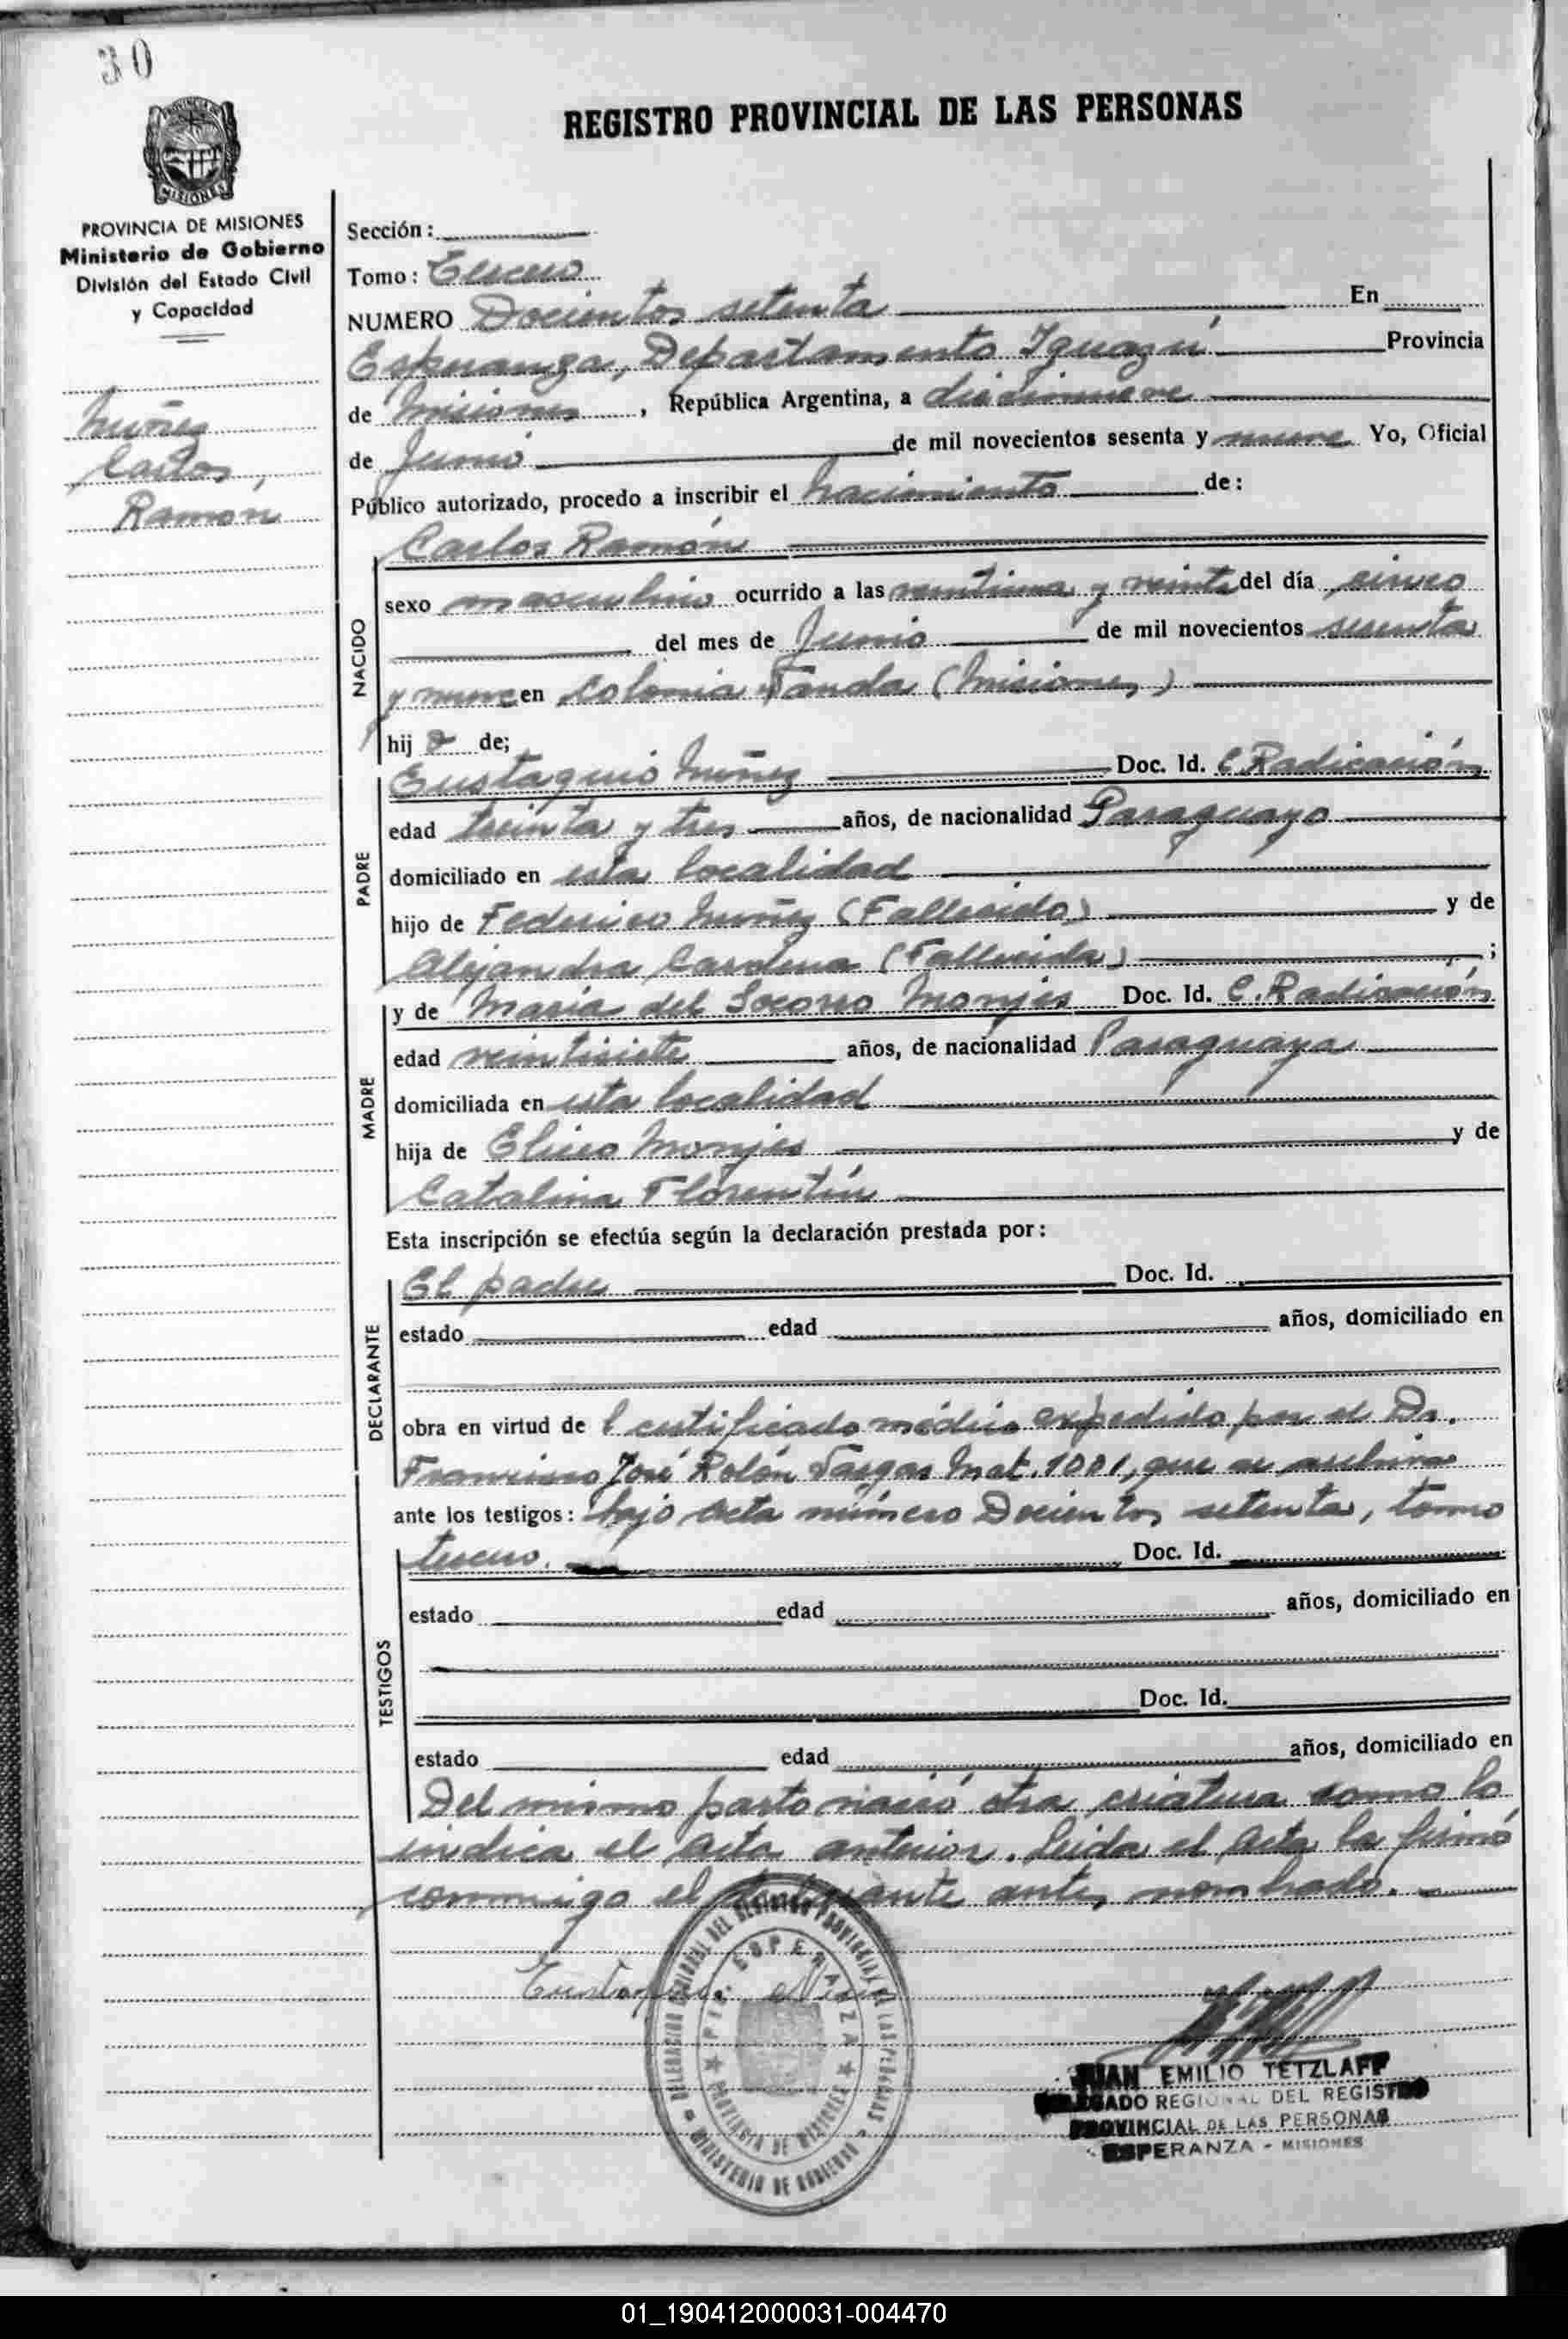 30
REGISTRO PROVINCIAL DE LAS PERSONAS
PROVINCIA DE MISIONES
Ministerio de Gobierno
División del Estado Civil
y Capacidad
Nuñez
Carlos,
Ramón
Sección:
Tomo: Tercero
NUMERO Docientos setenta En
Esperanza, Departamento Iguazú Provincia
de Misiones, República Argentina, a diecinueve
de Junio de mil novecientos sesenta y nueve Yo, Oficial
Público autorizado, procedo a inscribir el nacimiento de:
Carlos Ramón
NACIDO
sexo masculino ocurrido a las veintiuna y veinte del día cinco
del mes de Junio de mil novecientos sesenta
y nueve en Colonia Wanda (Misiones)
hijo de;
PADRE
Eustaquio Nuñez Doc. Id. C. Radicación
edad treinta y tres años, de nacionalidad Paraguayo
domiciliado en esta localidad
hijo de Federico Nuñez (Fallecido) y de
Alejandra (Fallecida) ;
MADRE
y de Maria del Socorro Monjes Doc. Id. C. Radicación
edad veintisiete años, de nacionalidad Paraguaya
domiciliada en esta localidad
hija de Eliseo Monjes y de
Catalina Florentín
Esta inscripción se efectúa según la declaración prestada por:
DECLARANTE
El padre Doc. Id.
estado edad años, domiciliado en
obra en virtud de l certificado médico expedido por el Dr.
Francisco José Rolón Vargas Mat. 1001, que se archiva
ante los testigos: bajo acta número Docientos setenta, tomo
TESTIGOS
tercero. Doc. Id.
estado edad años, domiciliado en
Doc. Id.
estado edad años, domiciliado en
Del mismo parto nació otra criatura como lo
indica el acta anterior. Leida el acta la firmó
conmigo el declarante antes nombrado.
DELEGACION REGIONAL DEL REGISTRO PROVINCIAL DE LAS PERSONAS
MINISTERIO DE GOBIERNO
ESPERANZA
PROVINCIA DE MISIONES
JUAN EMILIO TETZLAFF
DELEGADO REGIONAL DEL REGISTRO
PROVINCIAL DE LAS PERSONAS
ESPERANZA - MISIONES
01_190412000031-004470